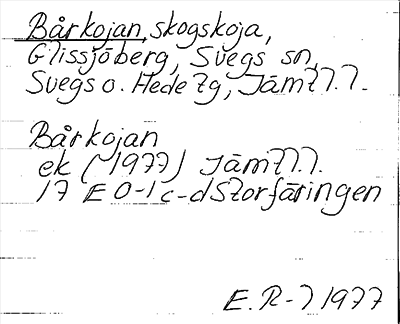 Bårkojan, skogskoja,
Glissjöberg, Svegs sn,
Svegs o. Hede tg, Jämtl. l.
Bårkojan
ek (1977) Jämtl. l.
17 E 0-1 c-d Storfäringen
E. R-l 1977